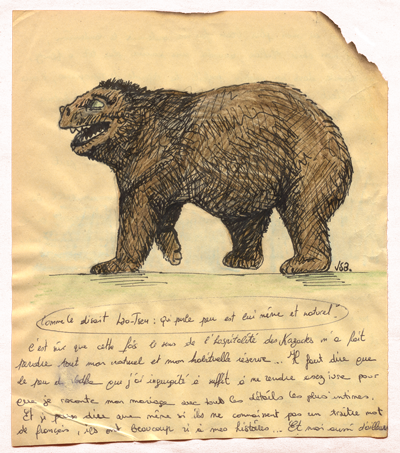 JGB.
"Comme le disait Lao-Tseu : qui parle peu est lui même et naturel".
C'est sûr que cette fois le sens de l'hospitalité des Kazachs m'a fait
perdre tout mon naturel et mon habituelle réserve... Il faut dire que
le peu de que j'ai ingurgité a suffit à me rendre assez ivre pour
que je raconte mon mariage avec tous les détails les plus intimes.
Et je peux dire que même si ils ne connaissent pas un traître mot
de français, ils ont beaucoup ri à mes histoires... Et moi aussi d'ailleurs